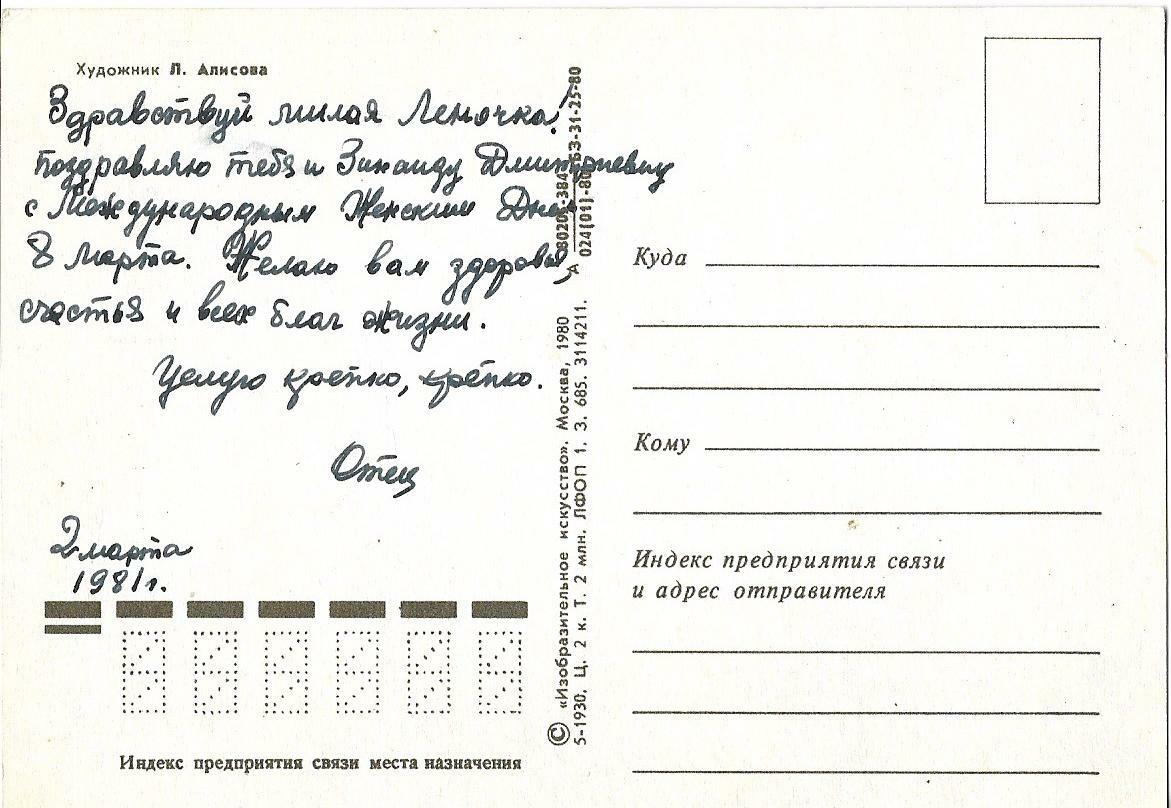 Художник Л. Алисова
Здравствуй милая Леночка!
поздравляю тебя и Зинаиду Дмитриевну
с Международным Женским Днем
8 марта. Желаю вам здоровья,
счастья и всех благ жизни.
Целую крепко, крепко.
Отец
2 марта
1981 г.
Индекс предприятия связи места назначения
© «Изобразительное искусство». Москва, 1980
5-1930. Ц. 2 к. Т. 2 млн. ЛФОП 1. З. 685. 3114211.
024(01)-80
Куда
Кому
Индекс предприятия связи
и адрес отправителя